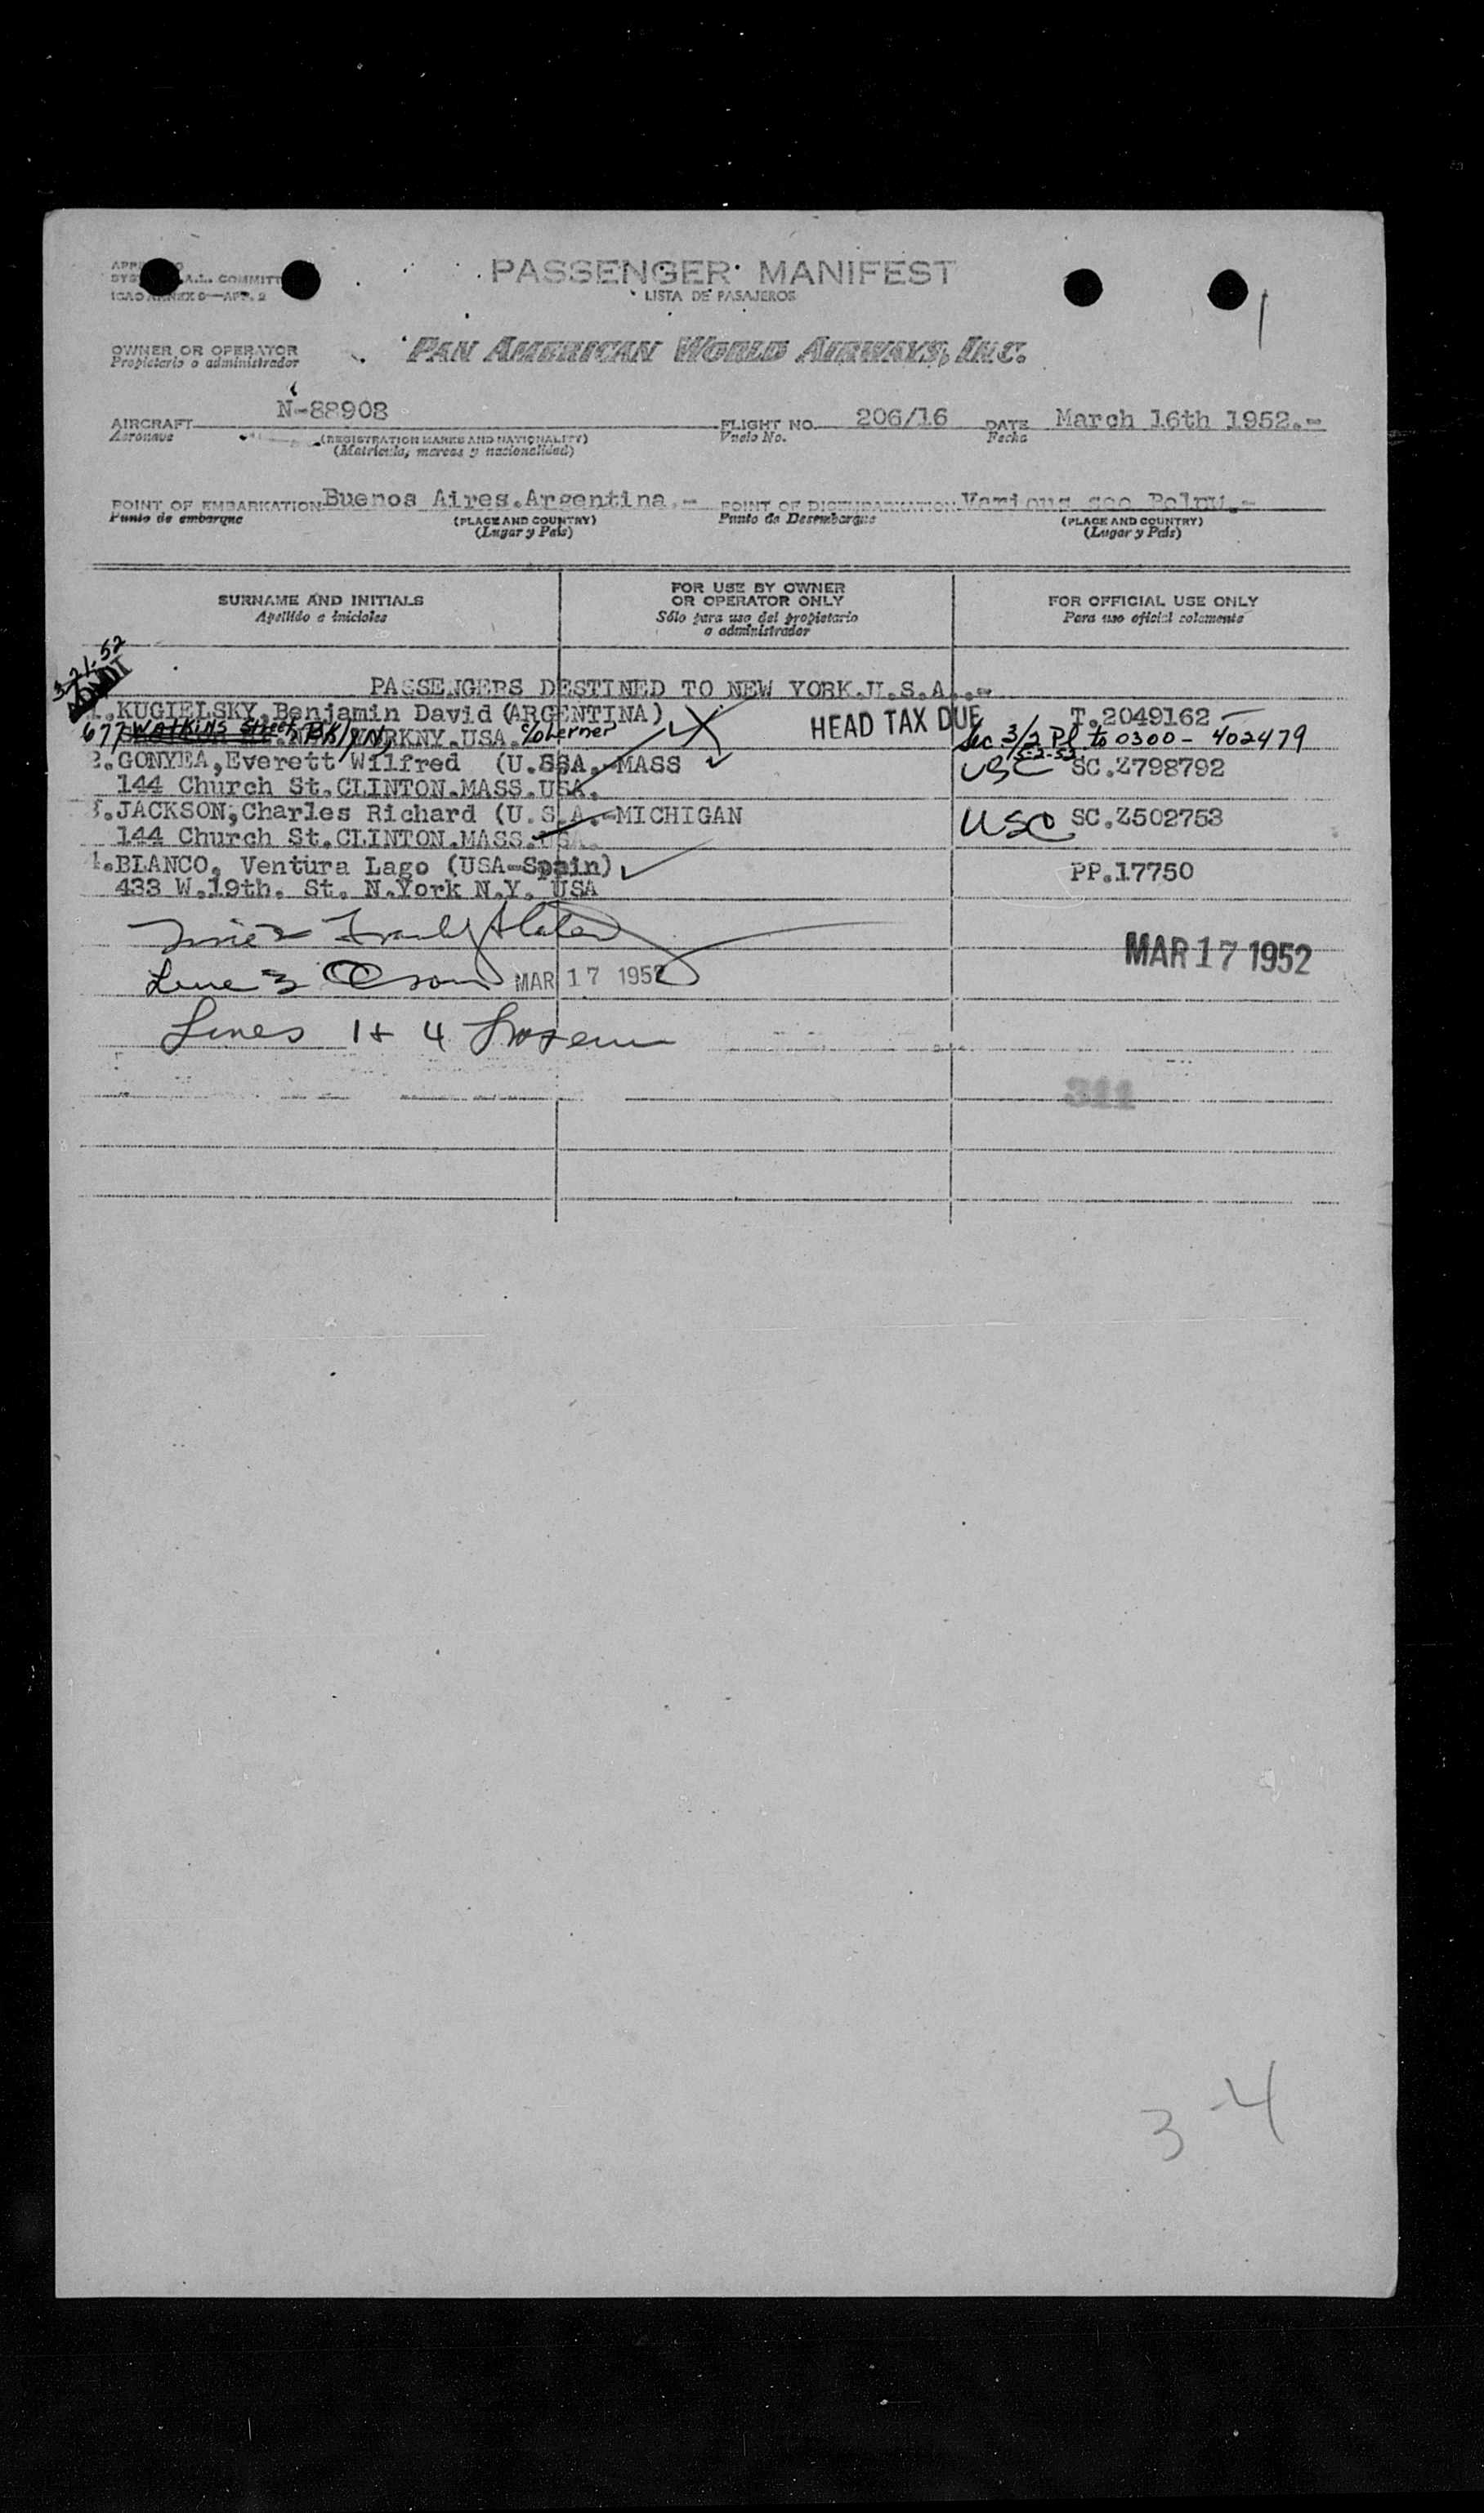 PASSENGER MANIFEST
LISTA DE PASAJEROS
ICAO ANNEX 9—APP. 2
OWNER OR OPERATOR
Propietario o administrador
PAN AMERICAN WORLD AIRWAYS, INC.
AIRCRAFT N-88908 FLIGHT NO. 206/16 DATE March 16th 1952.-
Aeronave (REGISTRATION MARKS AND NATIONALITY) Vuelo No. Fecha
(Matrícula, marcas y nacionalidad)
POINT OF EMBARKATION Buenos Aires.Argentina.- POINT OF DISEMBARKATION Various see Belov.-
Punto de embarque (PLACE AND COUNTRY) Punto de Desembarque (PLACE AND COUNTRY)
(Lugar y País) (Lugar y País)
SURNAME AND INITIALS
Apellido e iniciales
FOR USE BY OWNER
OR OPERATOR ONLY
Sólo para uso del propietario
o administrador
FOR OFFICIAL USE ONLY
Para uso oficial solamente
3-21-52
PASSENGERS DESTINED TO NEW YORK.U.S.A..-
1.KUGIELSKY,Benjamin David (ARGENTINA) HEAD TAX DUE T.2049162
677 Watkins Street Bklyn NY.USA. c/o Lerner Sec 3/2 Pl to 0300-402479
5-2-53
2.GONYEA,Everett Wilfred (U.SSA.-MASS USC SC.Z798792
144 Church St.CLINTON.MASS.USA.
3.JACKSON,Charles Richard (U.S.A.-MICHIGAN USC SC.Z502753
144 Church St.CLINTON.MASS.USA.
4.BLANCO, Ventura Lago (USA-Spain) PP.17750
433 W.19th. St. N.York N.Y. USA
Line 3 Olson MAR 17 1952
MAR 17 1952
Lines 1 + 4
311
3-4